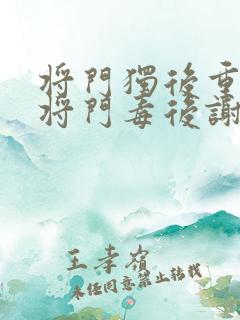 将門獨後重
将門毒後謝
王孝嶺
未经同意禁止转载